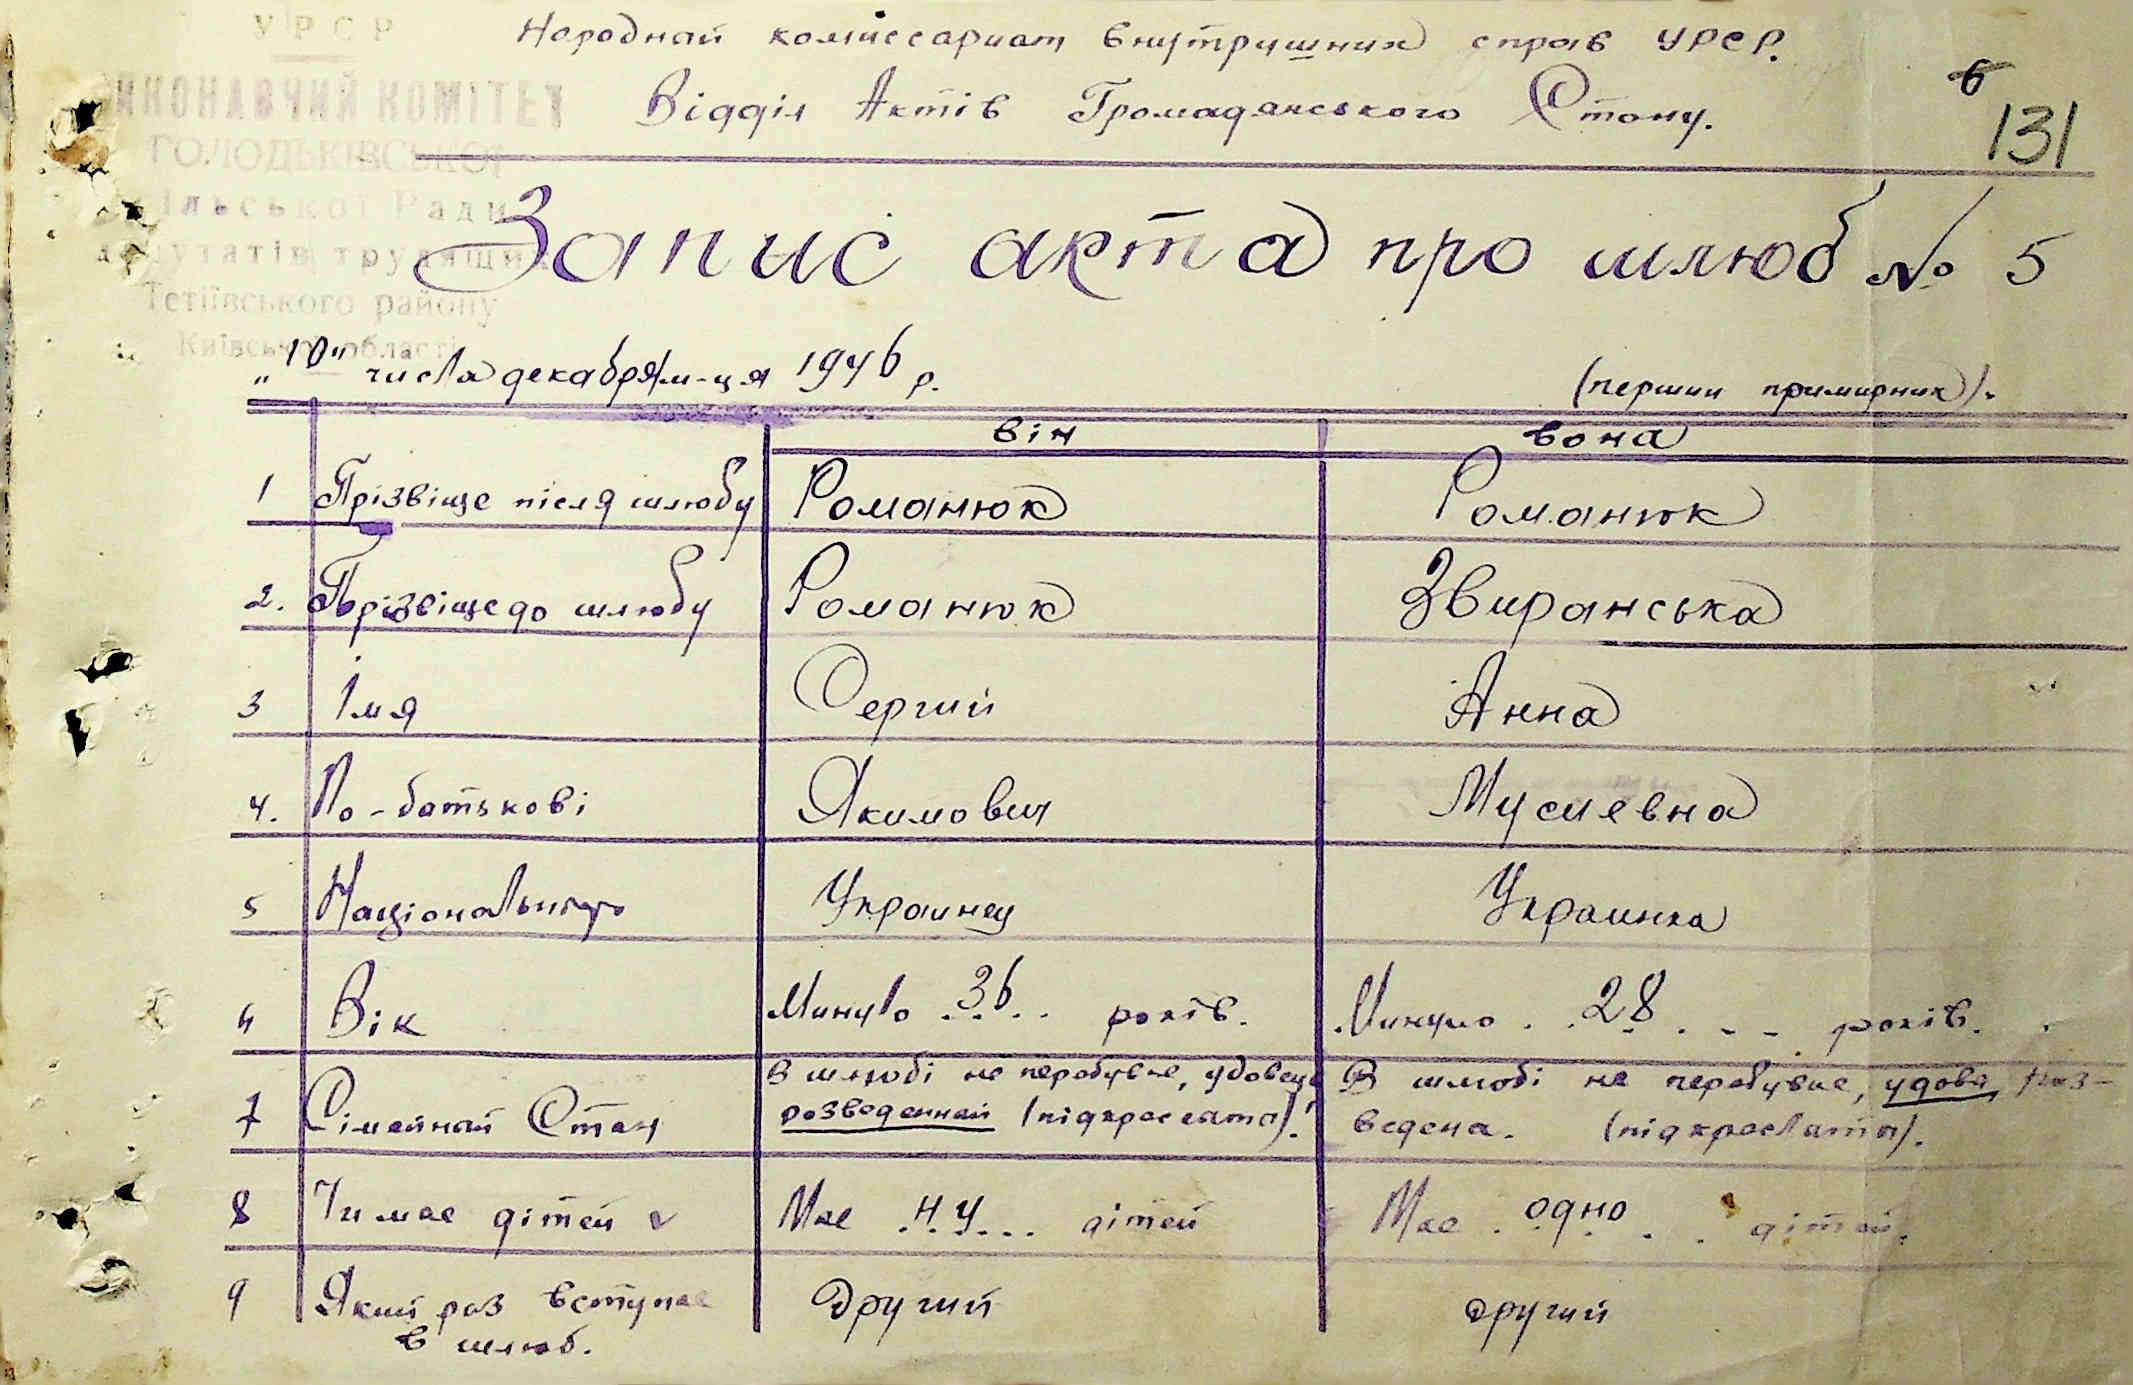 УРСР
ИКОНАВЧИЙ КОМІТЕТ
ГОЛОДЬКІВСЬКОЇ
ільської Ради
депутатів трудящих
Тетіївського району
Київської області
Народнай коміссариат внутрушних справ УРСР.
Відділ Актів Громадянського Стану.
6
131
Запис акта про шлюб № 5
"10" числа декабря м-ця 1946 р.
(перший примирник).
він вона
1 Прізвіще після шлюбу Романюк Романюк
2. Прізвіще до шлюбу Романюк Звиранська
3 Імя Сергий Анна
4. По-батькові Якимович Мусиевна
5 Національність Украинец Украинка
6 Вік Минуло 36 років. Минуло 28 років.
7 Сімейнай Стан В шлюбі не перебувае, удовець розведеннай (підкреслати). В шлюбі не перебувае, удова, роз-
ведена. (підкреслати).
8 Чи мае дітей Мае н.у... дітей Мае одно дітей.
9 Який раз вступае Другий другий
в шлюб.